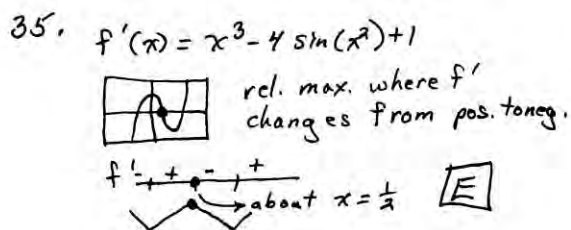 35. f'(x) = x³ - 4 sin(x²) + 1
rel. max. where f'
changes from pos. to neg.
f' - + - +
about x = 1/2
E